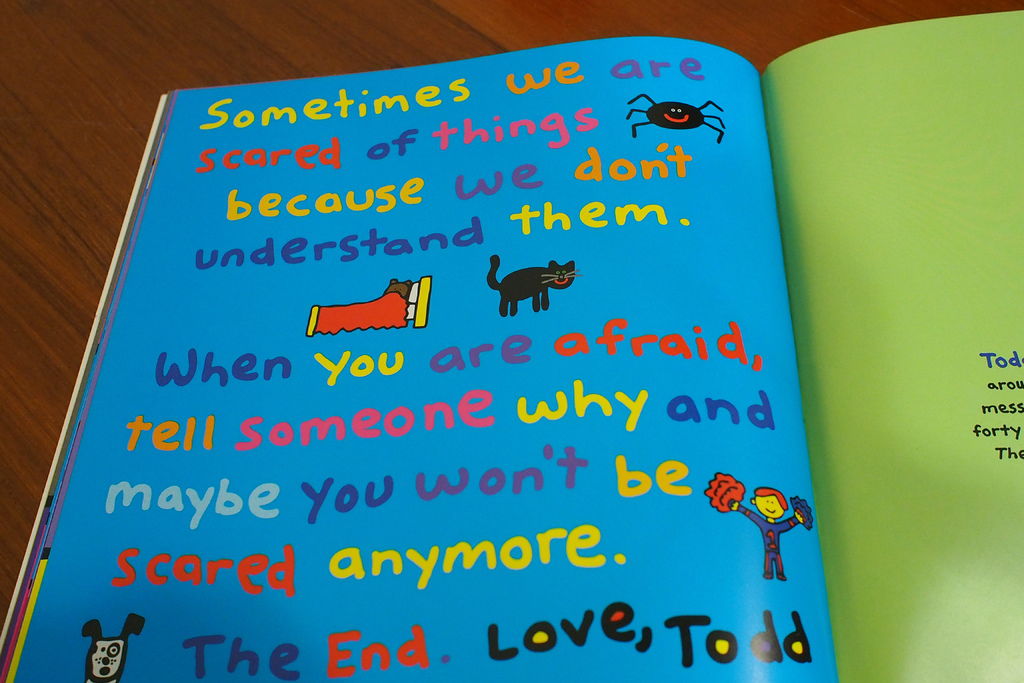 Sometimes we are
scared of things
because we don't
understand them.
When you are afraid,
tell someone why and
maybe you won't be
scared anymore.
The End. Love, Todd
forty